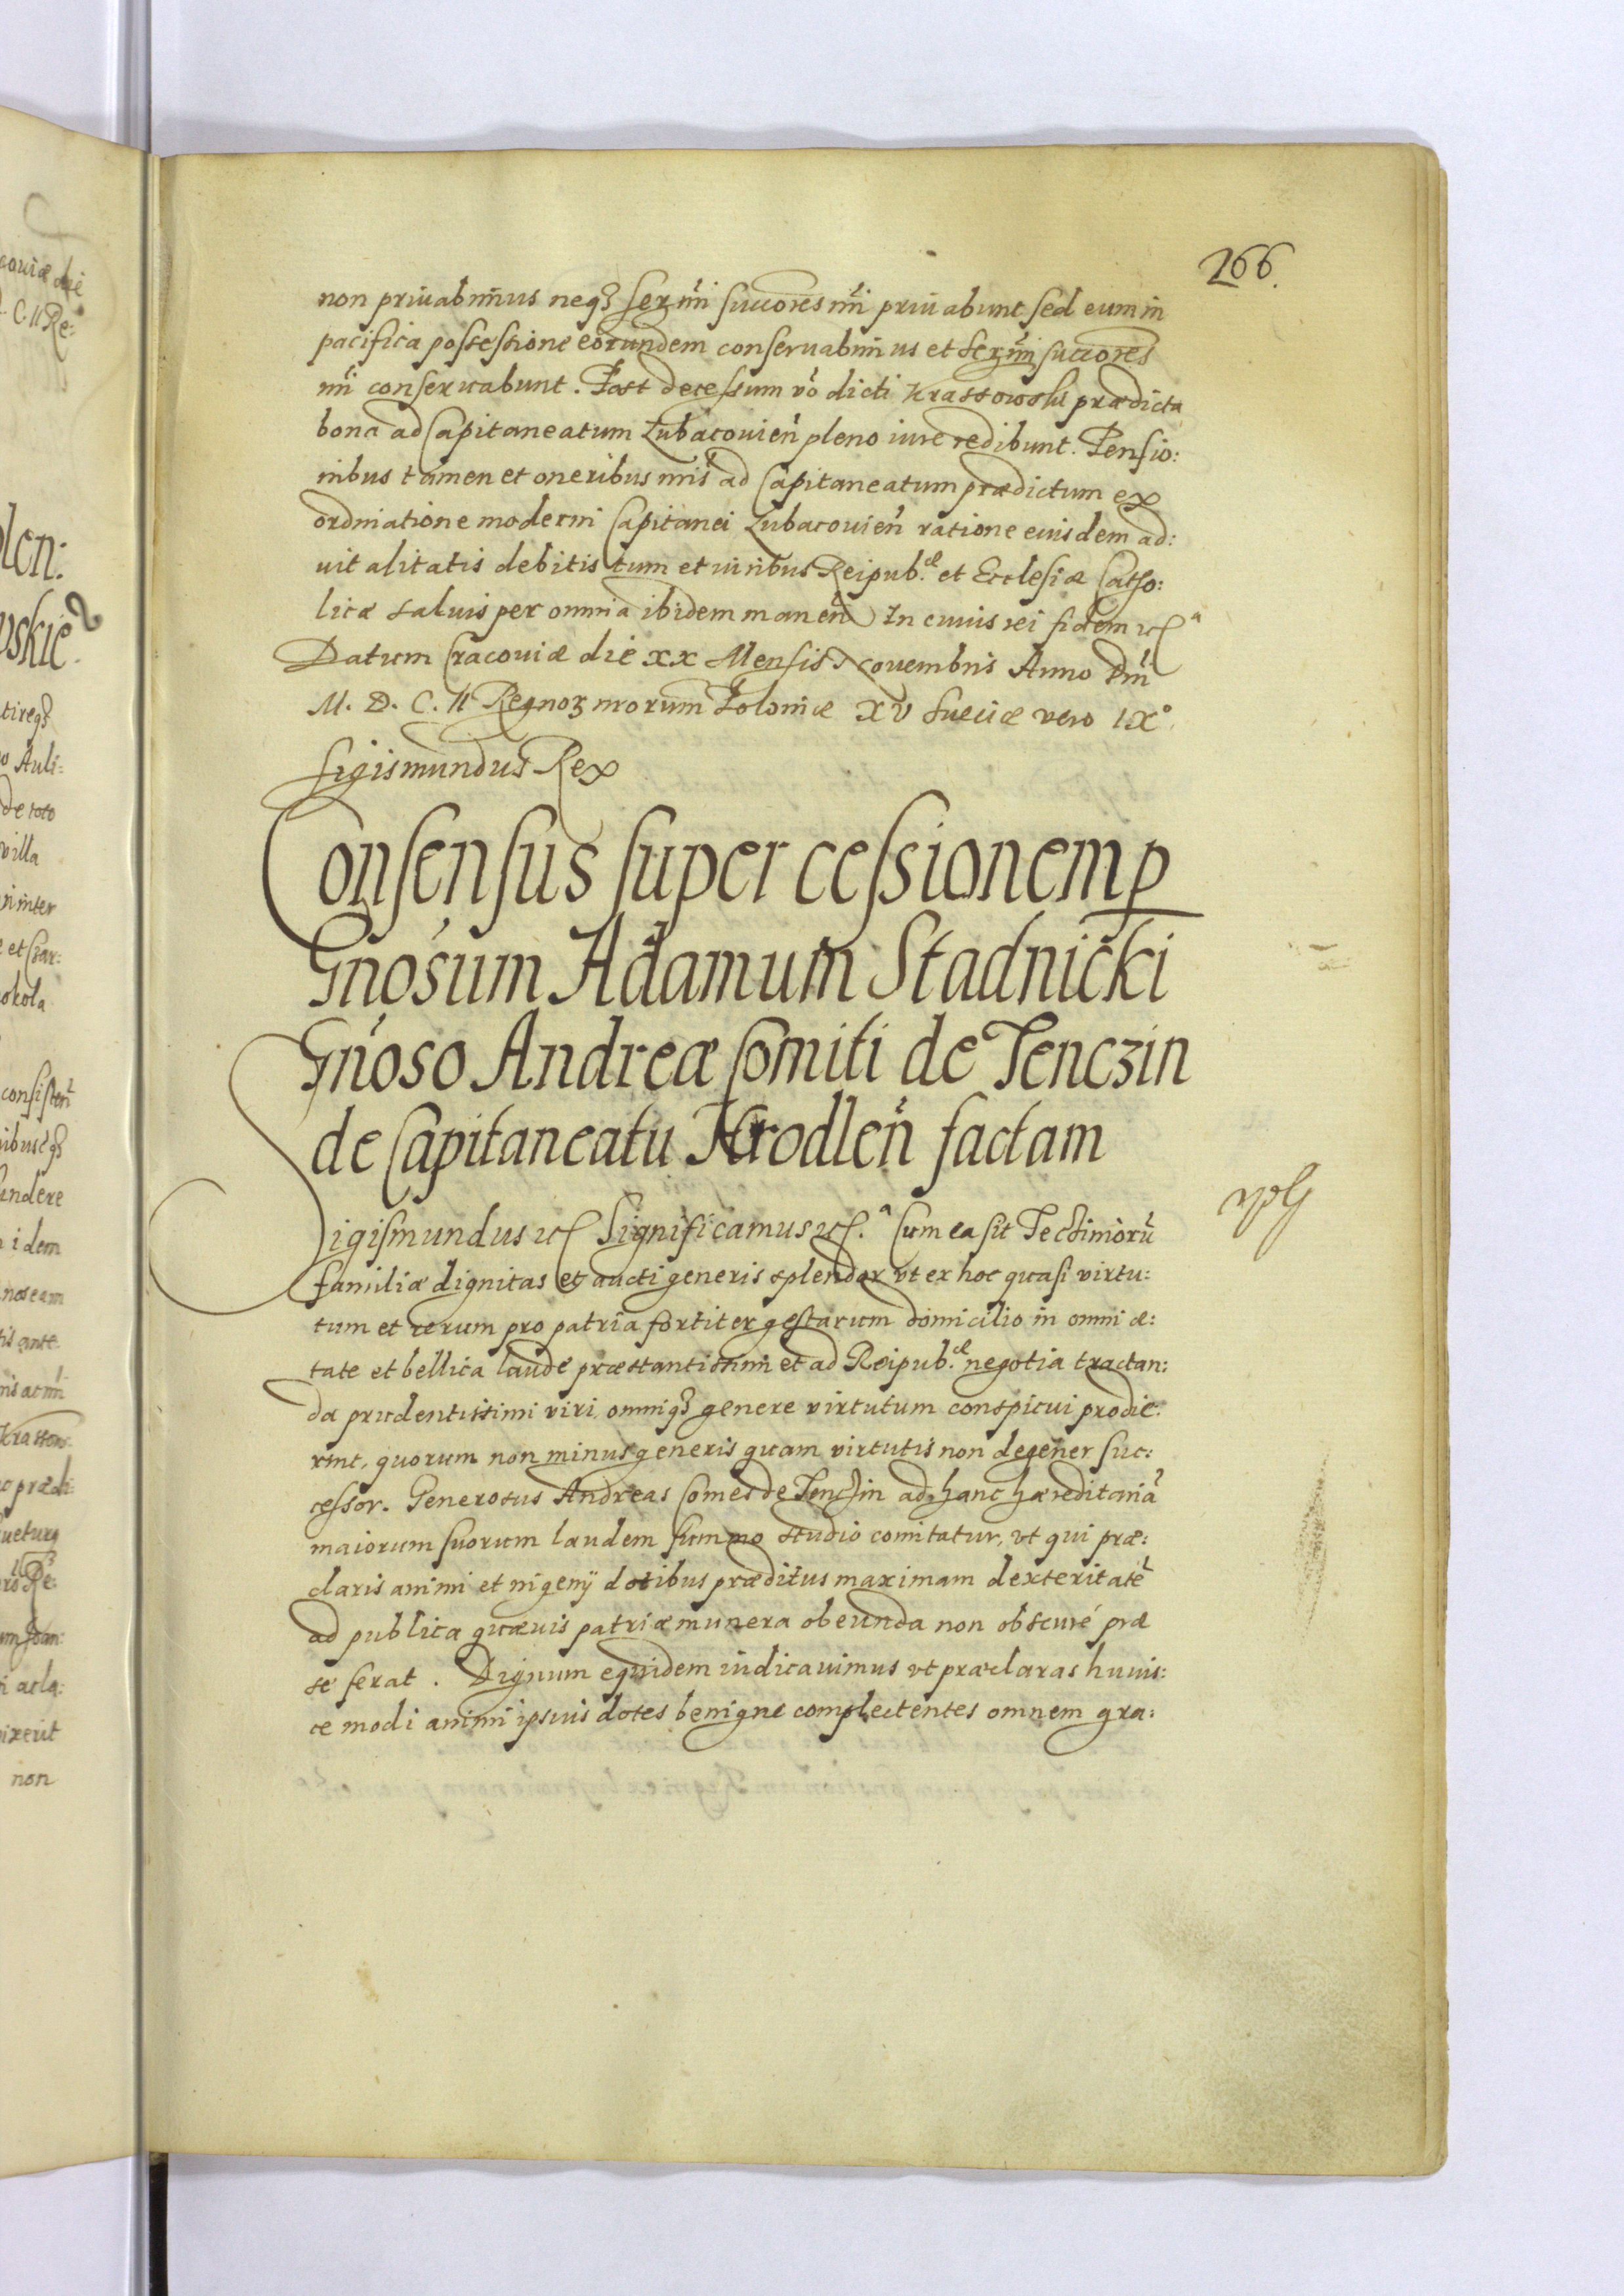 266.
non priuabimus neqꝫ Sermi succores nri priuabunt sed eum in
pacifica possessione eorundem conseruabimus et Sermi succores
nri conseruabunt. Post decessum vo dicti Krassowski prædicta
bona ad Capitaneatum Lubacouien pleno iure redibunt. Pensio:
nibus tamen et oneribus nris ad Capitaneatum prædictum ex
ordinatione moderni Capitanei Lubacouien ratione eiusdem ad:
uitalitatis debitis tum et iuribus Reipub.æ et Ecclesiæ Catho:
licæ saluis per omnia ibidem manen In cuius rei fidem
Datum Cracouiæ die XX Mensis Nouembris Anno Dni
M. D. C. II Regnoꝝ nrorum Poloniæ XV Sueciæ vero IXº.
Sigismundus Rex
Consensus super cessionem p
Gnosum Adamum Stadnicki
Gnoso Andreæ Comiti de Tenczin
de Capitaneatu Hrodlen factam
Sigismundus Significamus Cum ea sit Tecziniorū
familiæ dignitas et aucti generis splendor vt ex hoc quasi virtu:
tum et rerum pro patria fortiter gestarum domicilio in omni æ:
tate et bellica laude præstantissimi et ad Reipub.æ negotia tractan:
da prudentissimi viri, omniqꝫ genere virtutum conspicui prodie:
rint, quorum non minus generis quam virtutis non degener suc:
cessor. Generosus Andreas Comes de Tenczin ad hanc hæreditariā
maiorum suorum laudem summo studio comitatur, vt qui præ:
claris animi et nigenij dotibus præditus maximam dexteritatē
ad publica quæuis patriæ munera obeunda non obscuré præ
se ferat. Dignum equidem iudicauimus vt præclaras huius:
ce modi animi ipsius dotes benigne complectentes omnem gra: